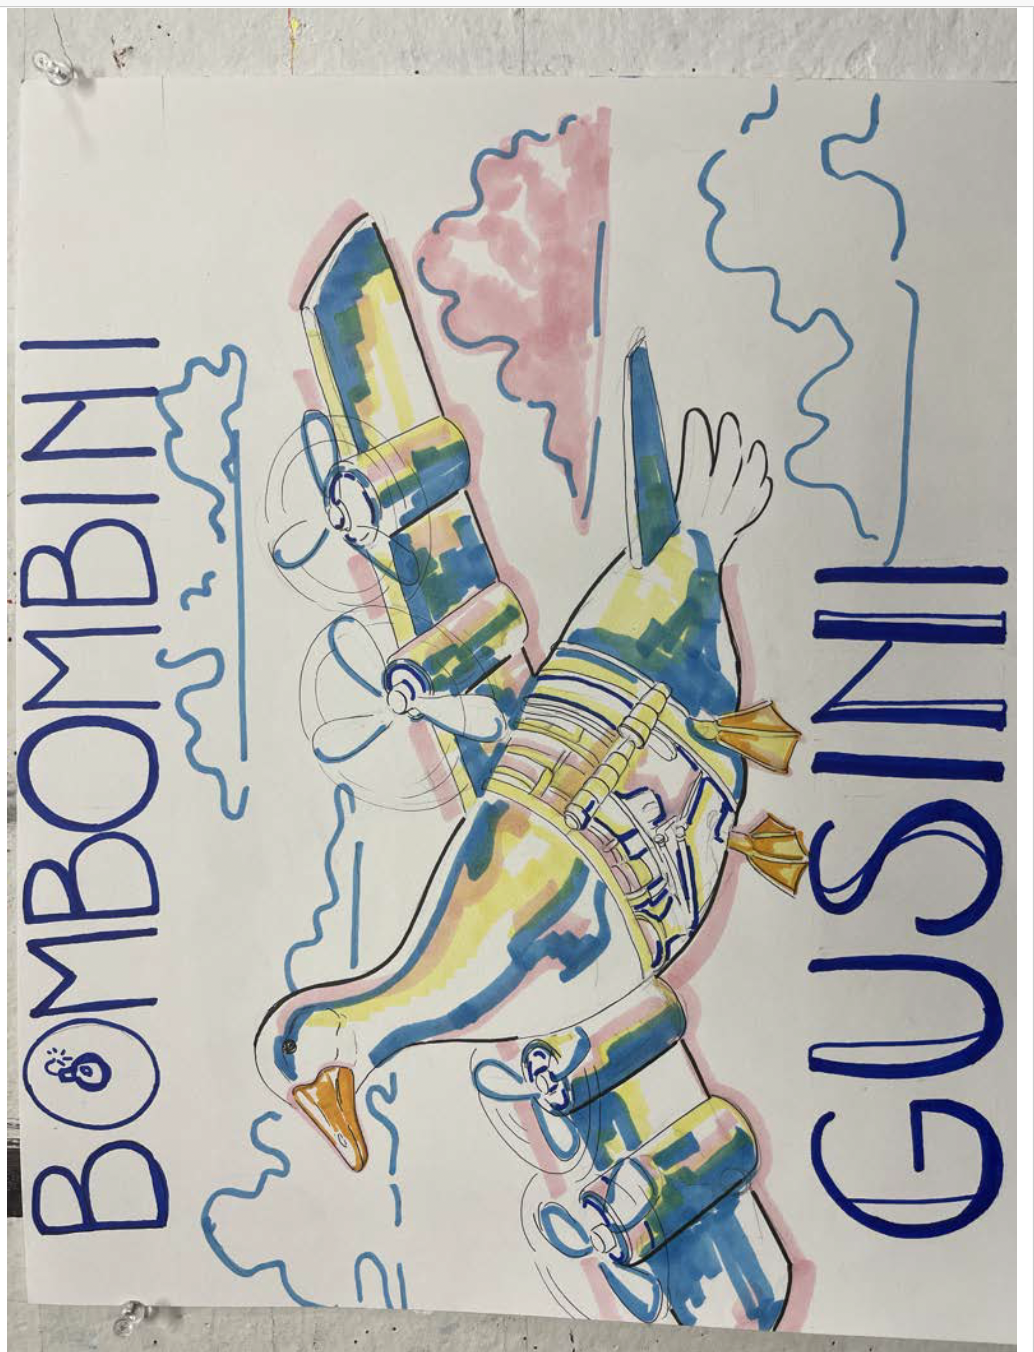 BOMBOMBINI
GUSINI